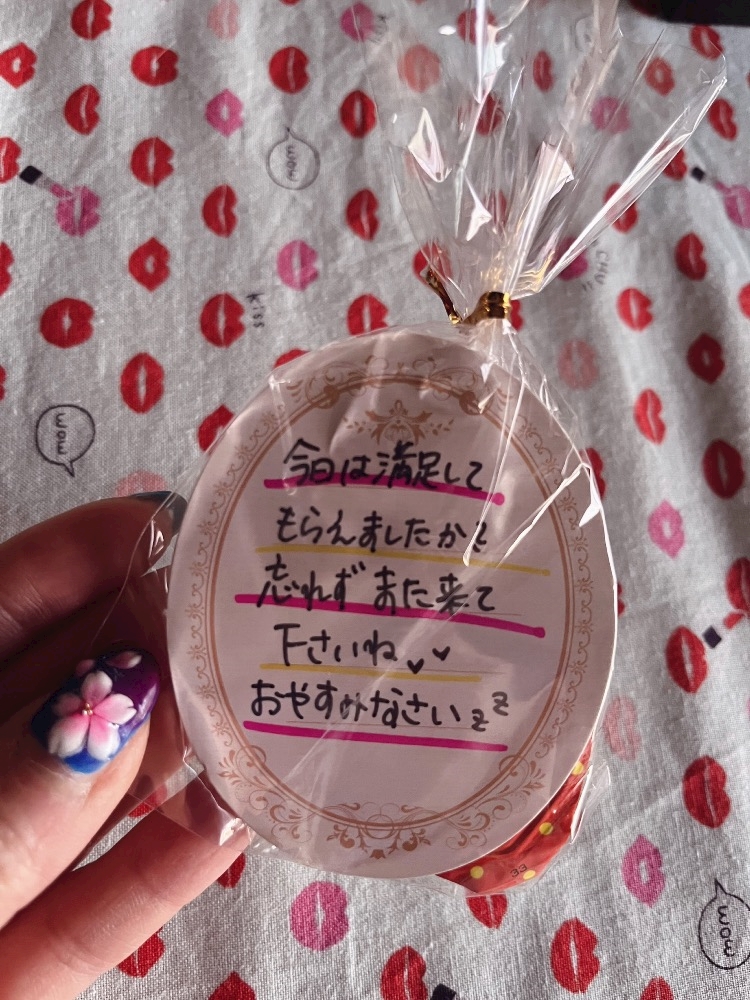 今日は満足して
もらえましたか?
忘れずまた来て
下さいね
おやすみなさい zz
wow
Kiss
wow
CHU
wow
33